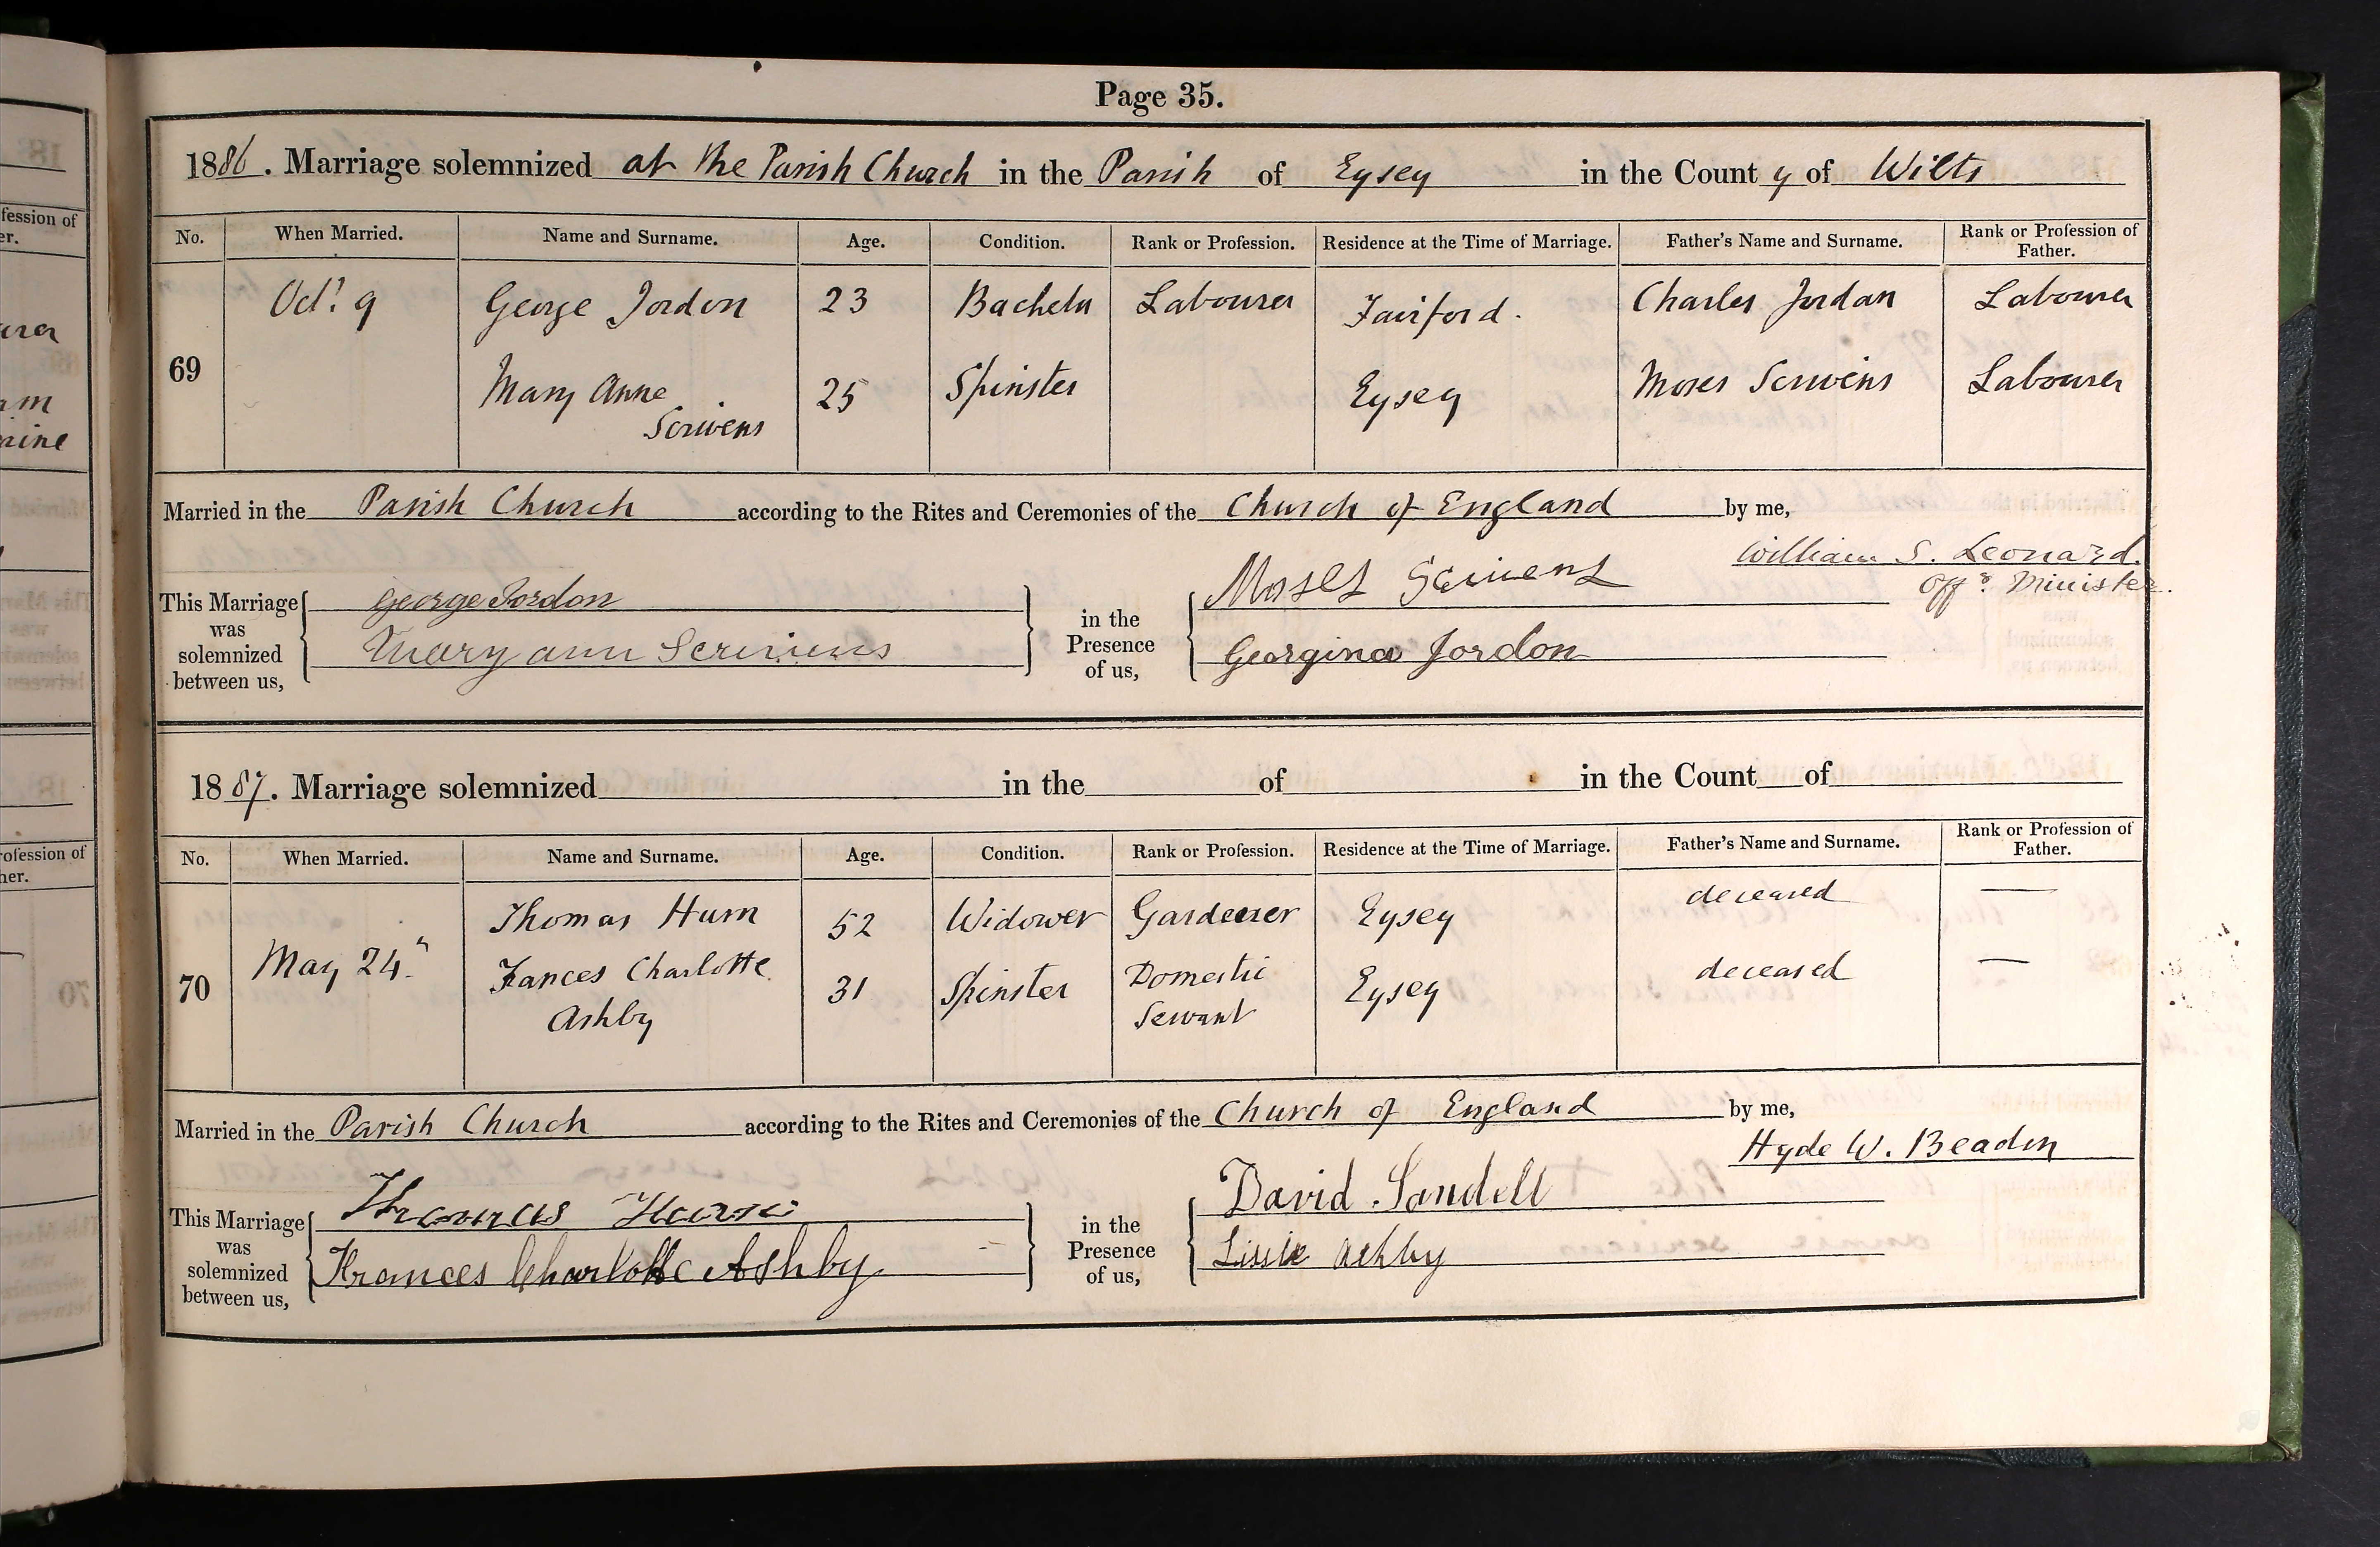 Page 35.
1886. Marriage solemnized at the Parish Church in the Parish of Eysey in the County of Wilts
No. When Married. Name and Surname. Age. Condition. Rank or Profession. Residence at the Time of Marriage. Father's Name and Surname. Rank or Profession of Father.
69 Oct. 9 George Jordon 23 Bachelor Labourer Fairford. Charles Jordan Labourer
Mary Anne Scrivens 25 Spinster Eysey Moses Scrivens Labourer
Married in the Parish Church according to the Rites and Ceremonies of the Church of England by me,
William S. Leonard.
Offg. Minister.
This Marriage was solemnized between us, George Jordon
Mary ann Scrivens
in the Presence of us, Moses Scrivens
Georgina Jordon
1887. Marriage solemnized in the of in the Count of
No. When Married. Name and Surname. Age. Condition. Rank or Profession. Residence at the Time of Marriage. Father's Name and Surname. Rank or Profession of Father.
70 May 24th Thomas Hurn 52 Widower Gardener Eysey deceased —
Frances Charlotte Ashby 31 Spinster Domestic Servant Eysey deceased —
Married in the Parish Church according to the Rites and Ceremonies of the Church of England by me,
Hyde W. Beadon
This Marriage was solemnized between us, Thomas
Frances Charlotte Ashby
in the Presence of us, David Sandell
Ashby